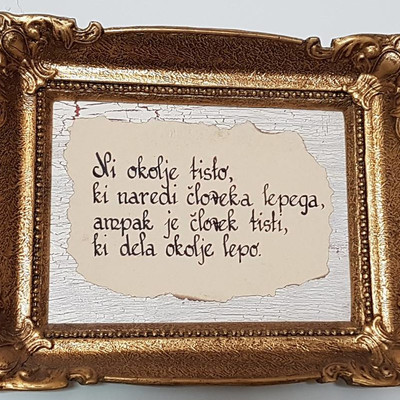 Ni okolje tisto,
ki naredi človeka lepega,
ampak je človek tisti,
ki dela okolje lepo.